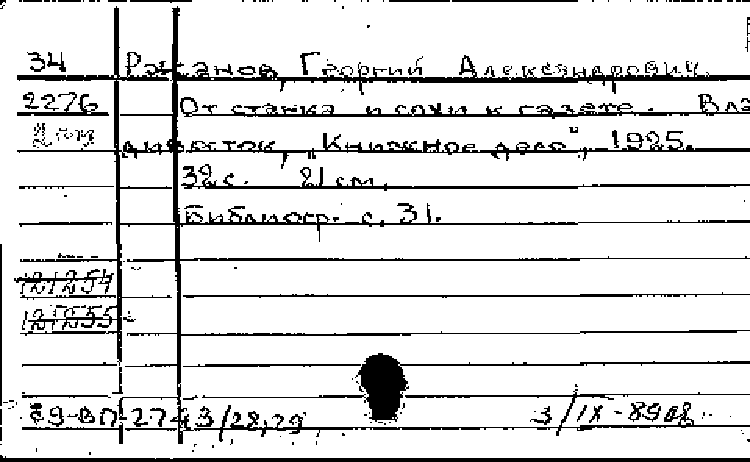 34 Ржанов, Георгий Александрович.
2276 От станка и сохи к газете. Вла
дивосток, „Книжное дело", 1925.
32 с. 21 см.
Библиогр. с. 31.
121254
121255
89-ВП-2743/28,29 3/IX-89